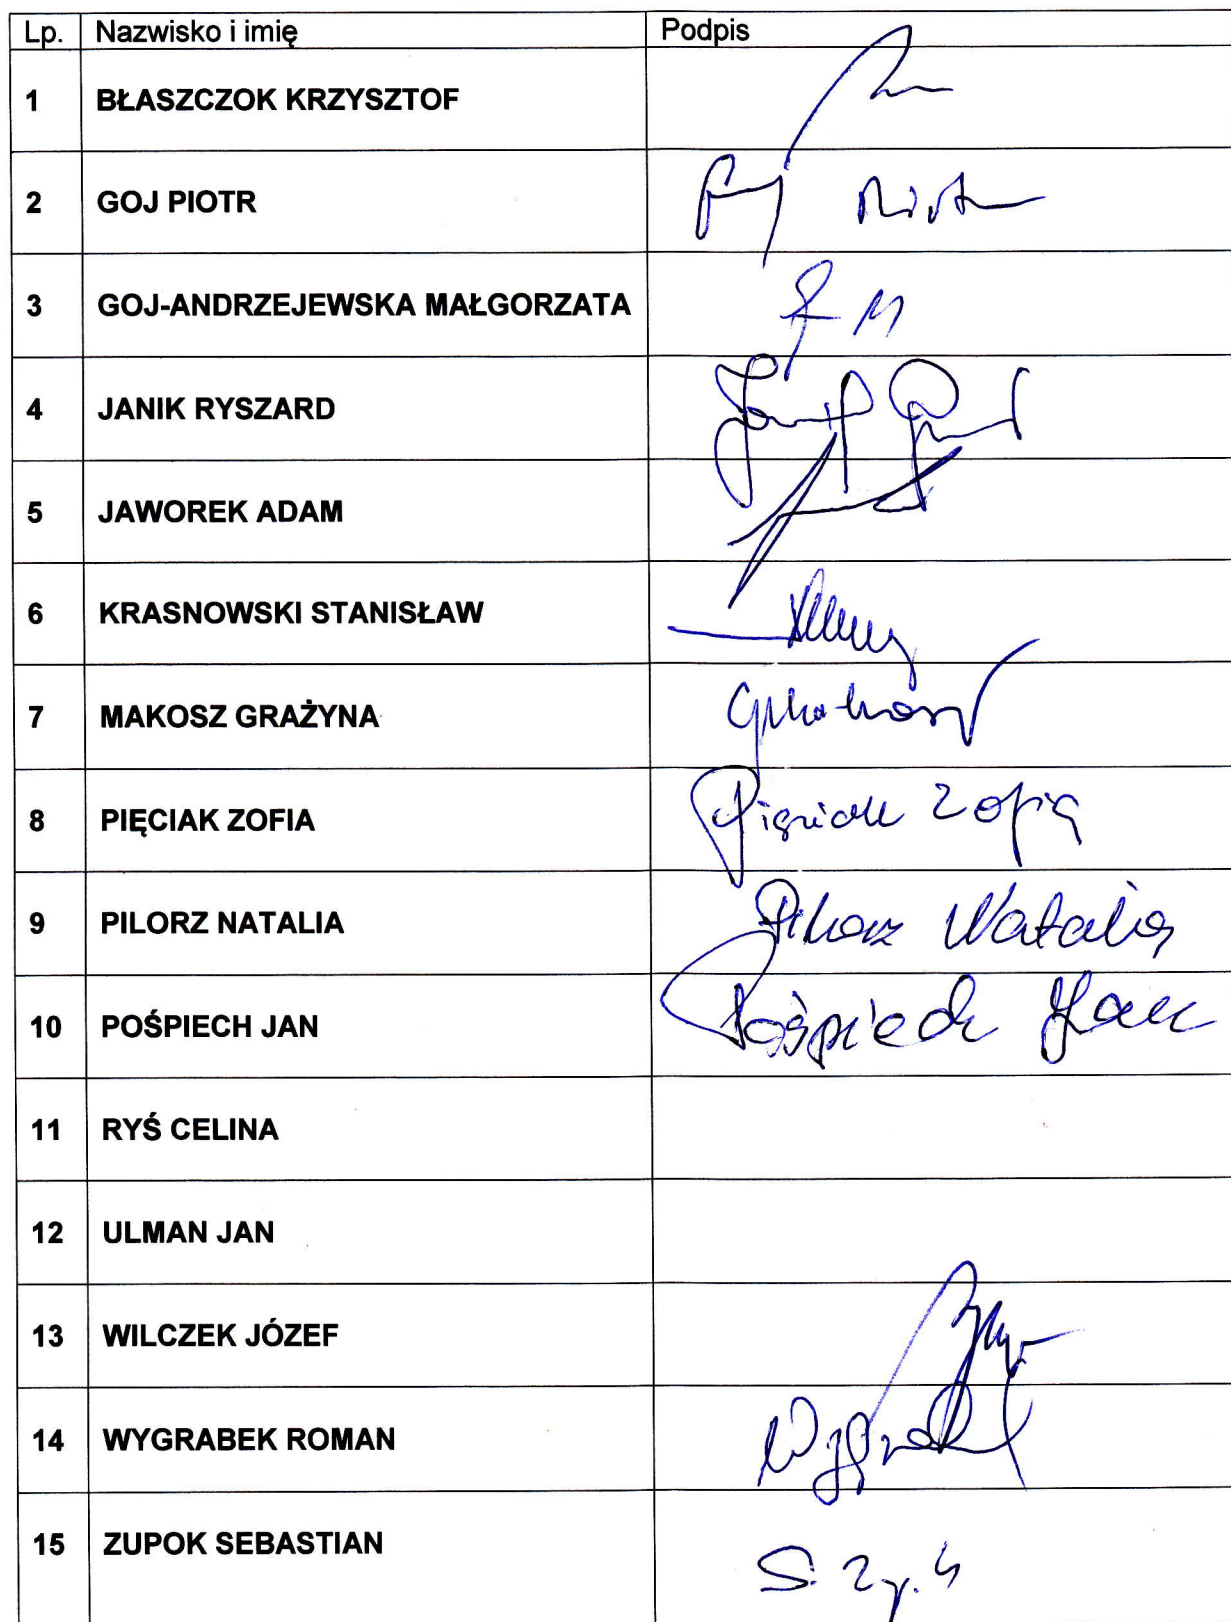 Lp. Nazwisko i imię Podpis
1 BŁASZCZOK KRZYSZTOF
2 GOJ PIOTR
3 GOJ-ANDRZEJEWSKA MAŁGORZATA
4 JANIK RYSZARD
5 JAWOREK ADAM
6 KRASNOWSKI STANISŁAW
7 MAKOSZ GRAŻYNA
8 PIĘCIAK ZOFIA Pięciak Zofia
9 PILORZ NATALIA Pilorz Natalia
10 POŚPIECH JAN Pośpiech Jan
11 RYŚ CELINA
12 ULMAN JAN
13 WILCZEK JÓZEF
14 WYGRABEK ROMAN
15 ZUPOK SEBASTIAN